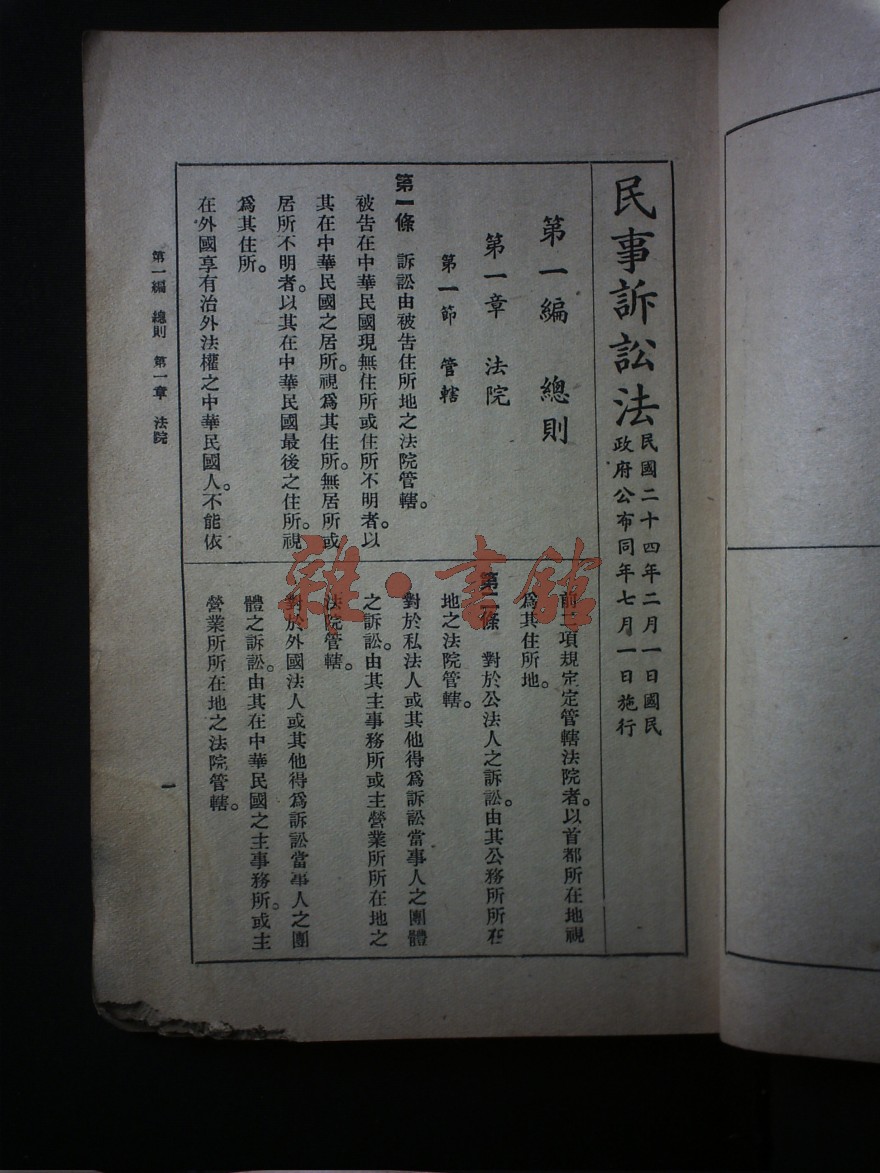 民事訴訟法
民國二十四年二月一日國民
政府公布同年七月一日施行
第一編 總則
第一章 法院
第一節 管轄
第一條 訴訟由被告住所地之法院管轄。
被告在中華民國現無住所或住所不明者。以
其在中華民國之居所。視爲其住所。無居所或
居所不明者。以其在中華民國最後之住所。視
爲其住所。
在外國享有治外法權之中華民國人。不能依
前二項規定定管轄法院者。以首都所在地視
爲其住所地。
第二條 對於公法人之訴訟。由其公務所所在
地之法院管轄。
對於私法人或其他得爲訴訟當事人之團體
之訴訟。由其主事務所或主營業所所在地之
法院管轄。
對於外國法人或其他得爲訴訟當事人之團
體之訴訟。由其在中華民國之主事務所。或主
營業所所在地之法院管轄。
第一編 總則 第一章 法院
一
雜·書館